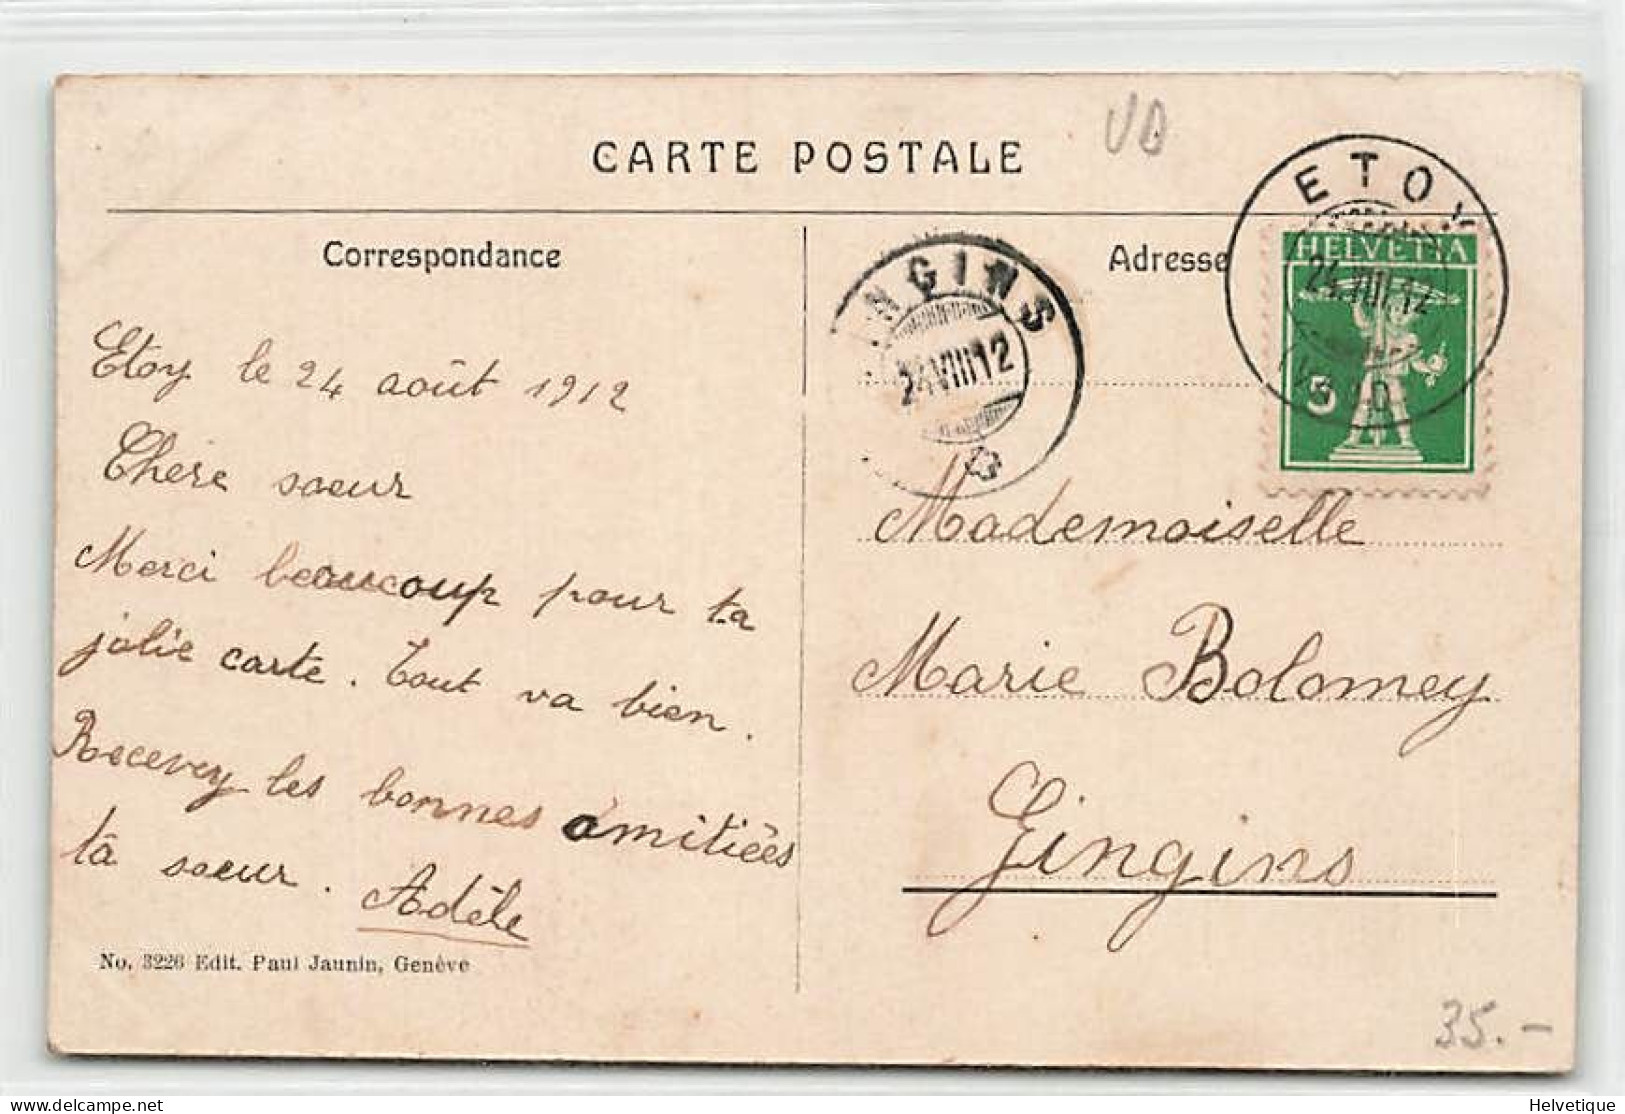 VD
CARTE POSTALE
Correspondance
Adresse
ETOY
HELVETIA
24.VIII.12
5
GINGINS
24.VIII12
Etoy le 24 août 1912
Chère soeur
Merci beaucoup pour ta
jolie carte. Tout va bien.
Recevez les bonnes amitiées
ta soeur. Adèle
Mademoiselle
Marie Bolomey
Gingins
No. 3226 Edit. Paul Jaunin, Genève
35.-
delcampe.net
Helvetique